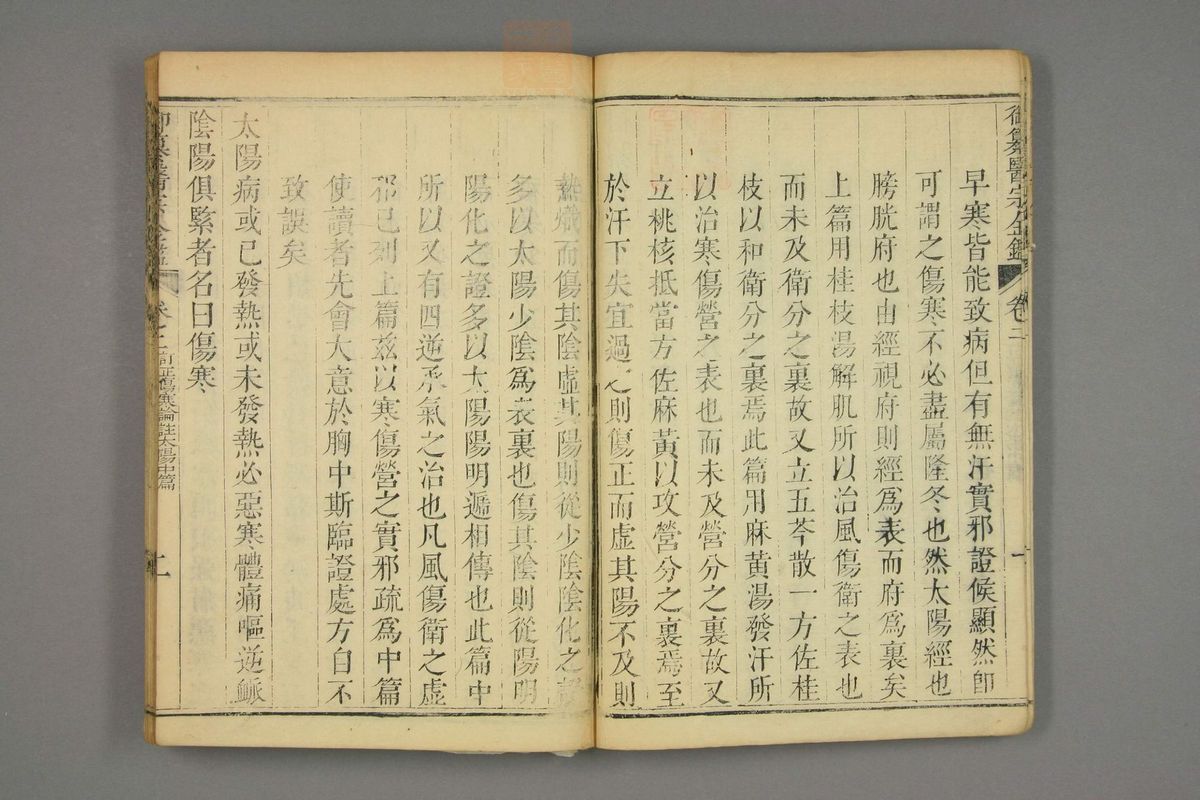 御纂醫宗金鑑 卷二
早寒皆能致病但有無汗實邪證候顯然卽
可謂之傷寒不必盡屬隆冬也然太陽經也
膀胱府也由經視府則經爲表而府爲裏矣
上篇用桂枝湯解肌所以治風傷衛之表也
而未及衛分之裏故又立五苓散一方佐桂
枝以和衛分之裏焉此篇用麻黃湯發汗所
以治寒傷營之表也而未及營分之裏故又
立桃核抵當方佐麻黃以攻營分之裏焉至
於汗下失宜過之則傷正而虛其陽不及則
熱熾而傷其陰虛其陽則從少陰陰化之證
多以太陽少陰爲表裏也傷其陰則從陽明
陽化之證多以太陽陽明遞相傳也此篇中
所以又有四逆承氣之治也凡風傷衛之虛
邪已列上篇茲以寒傷營之實邪疏爲中篇
使讀者先會大意於胸中斯臨證處方自不
致誤矣
太陽病或已發熱或未發熱必惡寒體痛嘔逆脈
陰陽俱緊者名曰傷寒
御纂醫宗金鑑 卷之二 訂正傷寒論註太陽中篇 二